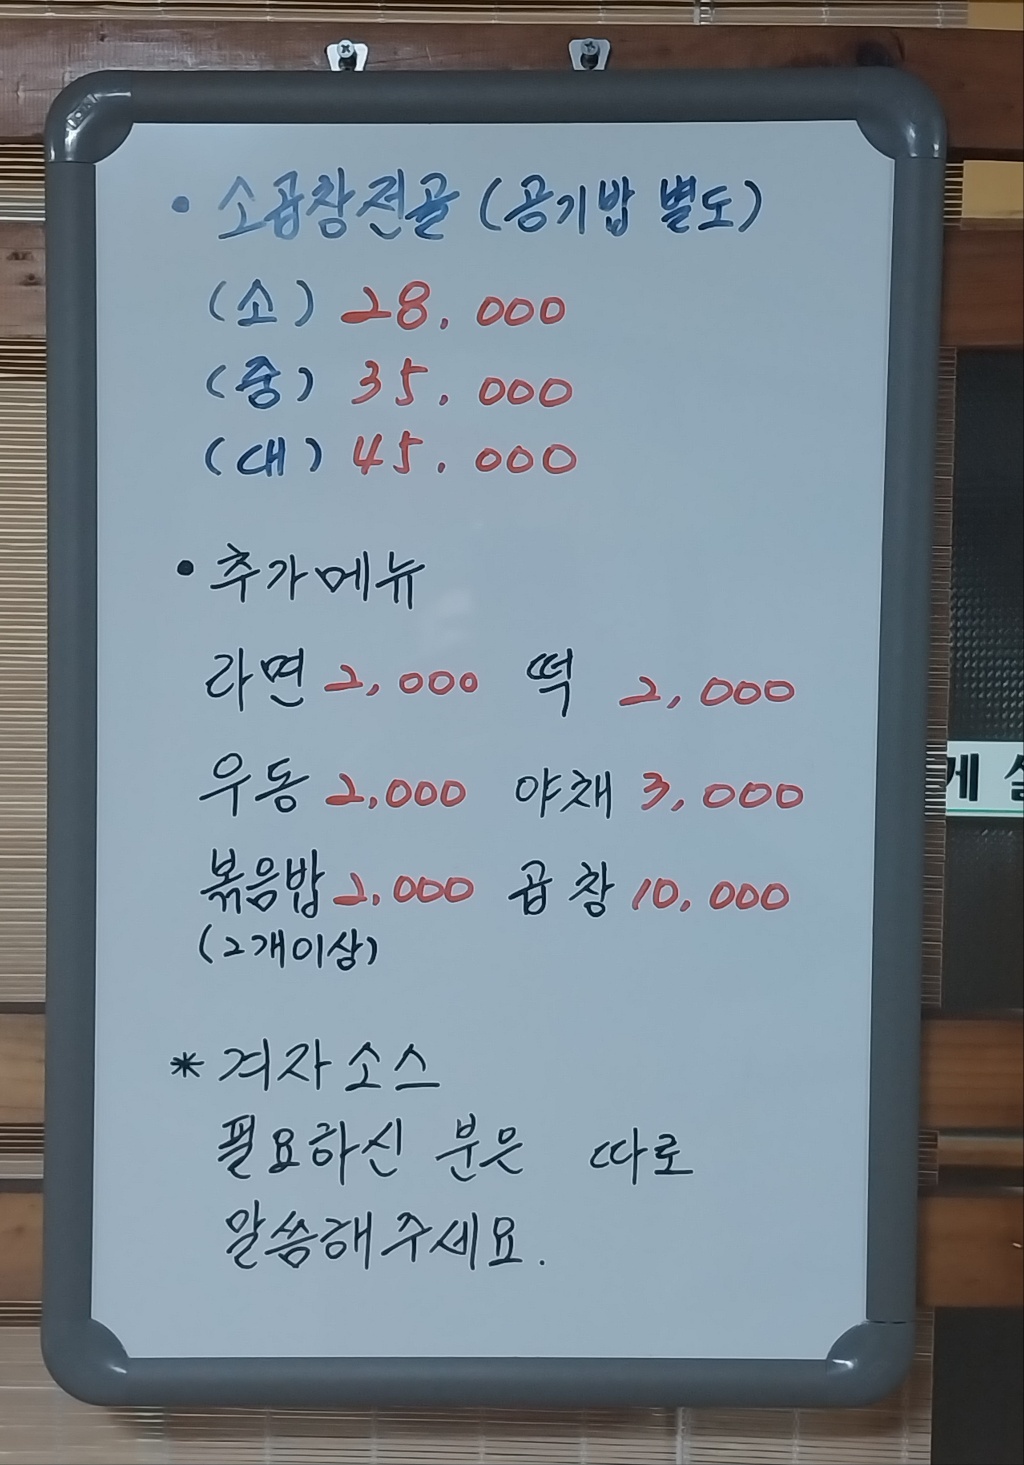 • 소곱창전골 (공기밥 별도)
(소) 28.000
(중) 35.000
(대) 45.000
• 추가메뉴
라면 2,000 떡 2,000
우동 2,000 야채 3,000
볶음밥 2,000 곱창 10,000
(2개이상)
* 겨자소스
필요하신 분은 따로
말씀해주세요.
게